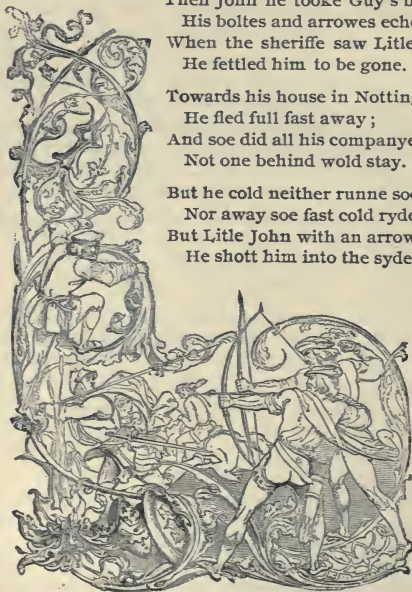 Then John he tooke Guy's b
His boltes and arrowes eche
When the sheriffe saw Litle
He fettled him to be gone.
Towards his house in Notting
He fled full fast away;
And soe did all his companye
Not one behind wold stay.
But he cold neither runne soe
Nor away soe fast cold ryde
But Litle John with an arrow
He shott him into the syde